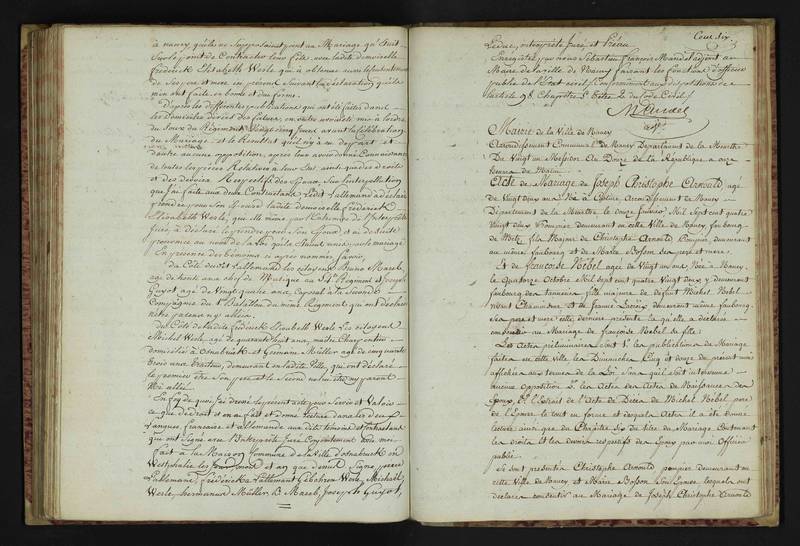 à nancy, qu'ils ne s'opposaient point au Mariage qu'était
Sur le point de Contracter leur fils, avec ladite demoiselle
frederick Elisabeth Werle, qui a obtenu aussi le consentement
de ses pere et mere ici présent Suivant la déclaration qu'ils
m'en ont faite, en bonne et due forme.
D'après les différentes publications qui ont été faites dans
les Domiciles divers des futurs, en outre mise à l'ordre
du Jour du Régiment Vingt cinq jours avant la Célébration
du Mariage, et le Résultat qu'il n'y a eu de part et
d'autre aucune opposition, après leur avoir donné Connaissance
de toutes les pieces Relatives à leur état ainsi que des droits
et des devoirs Respectifs des Epoux, sur l'interpellation
que j'ai faite aux deux Contractans, ledit Lallemand a déclaré
prendre pour son Epouse ladite demoiselle frederick
Elisabeth Werle, qui elle même par l'entremise de l'Interprète
Juré, a déclaré le prendre pour son Epoux, et ai de suite
prononcé au nom de la loi qu'ils étaient unis par le mariage
En présence des témoins ci après nommés, Savoir,
du Côté dudit Lallemand les citoyens Bruno Mareb,
agé de trente ans, chef de Musique au 54e Régiment et Joseph
Guyot, agé de Vingt quatre ans, Caporal à la Seconde
Compagnie du 1er Bataillon du même Régiment qui ont déclaré
n'être parens ny alliés.
du Côté de ladite frederick Elisabeth Werle les citoyens
Michel Werle, agé de quarante huit ans, maître Charpentier
domicilié à osnabruck et hermann Müller agé de cinquante
trois ans, demeurant en ladite Ville, qui ont déclaré
le premier être son pere et le Second n'être ny parent
Ni allié.
En foy de quoi j'ai dressé le présent acte pour servir et Valoir
ce que de droit et en ai fait et donné lecture dans les deux
Langues française et allemande aux dits témoins et Contractans
qui ont signé avec l'Interprète Juré Conjointement avec moi.
fait à la Maison Commune de la Ville d'osnabruck en
Westphalie les jour, mois et an que dessus. Signé, pierre
Lallemand, frédéricke Lallemant Gebohren Werle, Michael
Werle, hermanus Müller, B. Mareb, Joseph Guyot,
Cent six.
Leduc, interprète Juré, et Préau.
Enregistré par nous Sébastien François Mandel adjoint au
Maire de la ville de Nancy faisant les fonctions d'officier
public de l'Etat civil, Conformément aux dispositions de
l'article 98 Chapitre 5. Titre 2. du Code Civil.
Mandel
Mairie de la Ville de Nancy
Arrondissement Communal de Nancy Département de la Meurthe
Du Vingt un Messidor An Douze de la République à onze
heures du Matin.
Acte de Mariage de Joseph Christophe Arnould agé
de Vingt deux ans Né à Arrondissement de Nancy
Département de la Meurthe, le douze Janvier Mil Sept cent quatre
Vingt deux Pompier demeurant en cette Ville de Nancy, faubourg
de Metz fils Majeur de Christophe Arnould Pompier, demeurant
au même faubourg et de Marie Bosson ses pere et mere.
Et de françoise Nebel agée de Vingt un ans Née à Nancy
le quatorze Octobre Mil Sept cent quatre Vingt deux y demeurant
faubourg des tanneries fille majeure de défunt Michel Nebel
vivant Chamoiseur et de france Lacroix demeurant même faubourg
Ses pere et mere cette derniere présente la quelle a déclaré
consentir au Mariage de françoise Nebel sa fille:
Les Actes préliminaires sont 1° les publications de Mariage
faites en cette ville les Dimanches Cinq et douze du présent mois
affichées aux termes de la Loi Sans qu'il soit intervenu
aucune opposition 2° les Actes des Actes de Naissance des
Epoux, 3° l'Extrait de l'Acte de Décès de Michel Nebel pere
de l'Epouse le tout en forme et desquels Actes il a été donné
lecture ainsi que du Chapitre Six du titre du Mariage Contenant
les droits et les devoirs respectifs des Epoux par moi Officier
public.
Se sont présentés Christophe Arnould pompier demeurant en
cette Ville de Nancy et Marie Bosson Son Epouse lesquels ont
déclaré consentir au Mariage de Joseph Christophe Arnould